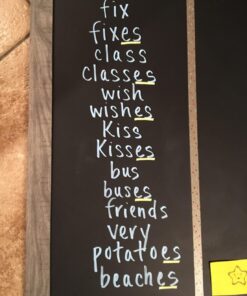 fix
fixes
class
classes
wish
wishes
Kiss
Kisses
bus
buses
friends
very
potatoes
beaches